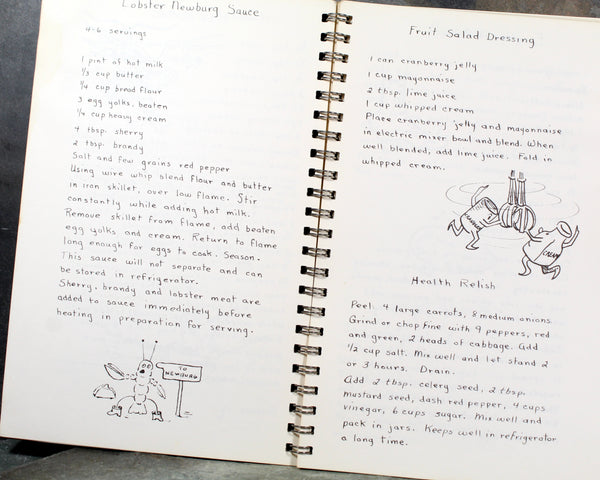 Lobster Newburg Sauce
4-6 servings
1 pint of hot milk
1/3 cup butter
1/4 cup bread flour
3 egg yolks, beaten
1/4 cup heavy cream
4 tbsp. sherry
2 tbsp. brandy
Salt and few grains red pepper
Using wire whip blend flour and butter
in iron skillet, over low flame. Stir
constantly while adding hot milk.
Remove skillet from flame, add beaten
egg yolks and cream. Return to flame
long enough for eggs to cook. Season.
This sauce will not separate and can
be stored in refrigerator.
Sherry, brandy and lobster meat are
added to sauce immediately before
heating in preparation for serving.
TO
NEWBURG
Fruit Salad Dressing
1 can cranberry jelly
1 cup mayonnaise
2 tbsp. lime juice
1 cup whipped cream
Place cranberry jelly and mayonnaise
in electric mixer bowl and blend. When
well blended, add lime juice. Fold in
whipped cream.
Health Relish
Peel: 4 large carrots, 8 medium onions.
Grind or chop fine with 9 peppers, red
and green, 2 heads of cabbage. Add
1/2 cup salt. Mix well and let stand 2
or 3 hours. Drain.
Add 2 tbsp. celery seed, 2 tbsp.
mustard seed, dash red pepper, 4 cups
vinegar, 6 cups sugar. Mix well and
pack in jars. Keeps well in refrigerator
a long time.